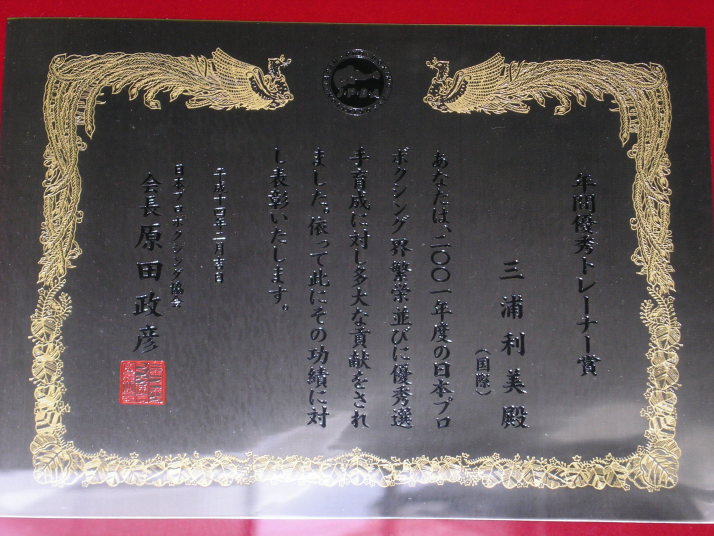 年間優秀トレーナー賞
三浦利美殿
（国際）
あなたは、二〇〇一年度の日本プロ
ボクシング界繁栄並びに優秀選
手育成に対し多大な貢献をされ
ました。依って此にその功績に対
し表彰いたします。
平成十四年二月吉日
日本プロボクシング協会
会長 原田政彦